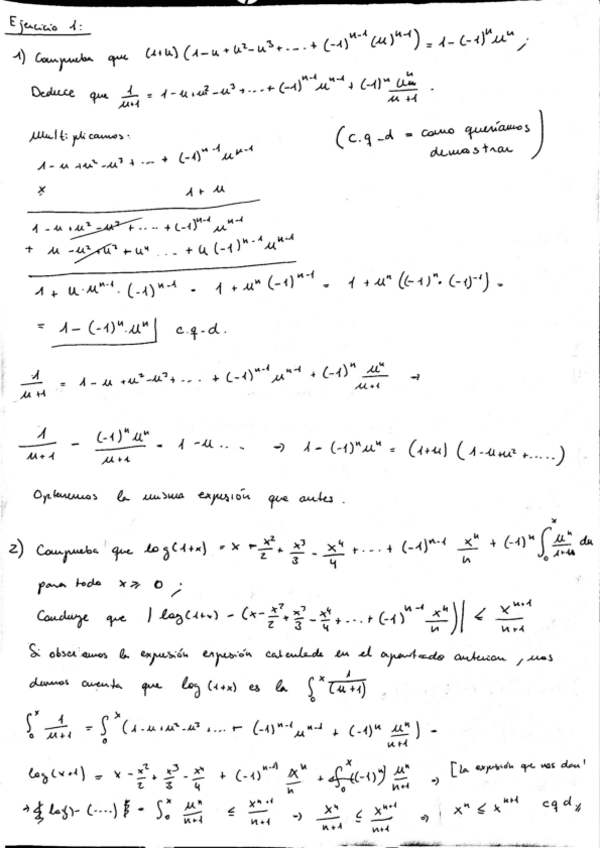 Ejercicio 1:
1) Comprueba que (1+u)(1-u+u²-u³+....+(-1)ⁿ⁻¹(u)ⁿ⁻¹) = 1-(-1)ⁿuⁿ ;
Deduce que 1/(u+1) = 1-u+u²-u³+...+(-1)ⁿ⁻¹uⁿ⁻¹+(-1)ⁿ uⁿ/(u+1) .
Multiplicamos:
(c.q-d = como queríamos
demostrar)
1-u+u²-u³+...+(-1)ⁿ⁻¹uⁿ⁻¹
x 1+u
1-u+u²-u³+....+(-1)ⁿ⁻¹uⁿ⁻¹
+ u-u²+u³+uⁿ ...+u(-1)ⁿ⁻¹uⁿ⁻¹
1+u·uⁿ⁻¹·(-1)ⁿ⁻¹ = 1+uⁿ(-1)ⁿ⁻¹ = 1+uⁿ((-1)ⁿ·(-1)⁻¹) =
= 1-(-1)ⁿ·uⁿ c.q-d.
1/(u+1) = 1-u+u²-u³+....+(-1)ⁿ⁻¹uⁿ⁻¹+(-1)ⁿ uⁿ/(u+1) →
1/(u+1) - (-1)ⁿuⁿ/(u+1) = 1-u.... → 1-(-1)ⁿuⁿ = (1+u)(1-u+u²+.....)
Obtenemos la misma expresión que antes.
2) Comprueba que log(1+x) = x+x²/2+x³/3-x⁴/4+...+(-1)ⁿ⁻¹ xⁿ/n+(-1)ⁿ∫₀ˣ uⁿ/(1+u) du
para todo x≥0 ;
Concluye que |log(1+x)-(x-x²/2+x³/3-x⁴/4+...+(-1)ⁿ⁻¹ xⁿ/n)| ≤ xⁿ⁺¹/(n+1)
Si observamos la expresión expresión calculada en el apartado anterior, nos
damos cuenta que log(1+x) es la ∫₀ˣ 1/(u+1)
∫₀ˣ 1/(u+1) = ∫₀ˣ(1-u+u²-u³+...+(-1)ⁿ⁻¹uⁿ⁻¹+(-1)ⁿ uⁿ/(u+1)) =
log(x+1) = x-x²/2+x³/3-x⁴/4+(-1)ⁿ⁻¹ xⁿ/n+∫₀ˣ(-1)ⁿ uⁿ/(n+1) → [La expresión que nos dan]
→ log)-(....) = ∫₀ˣ uⁿ/(n+1) ≤ xⁿ⁺¹/(n+1) → xⁿ/(n+1) ≤ xⁿ⁺¹/(n+1) → xⁿ ≤ xⁿ⁺¹ cqd